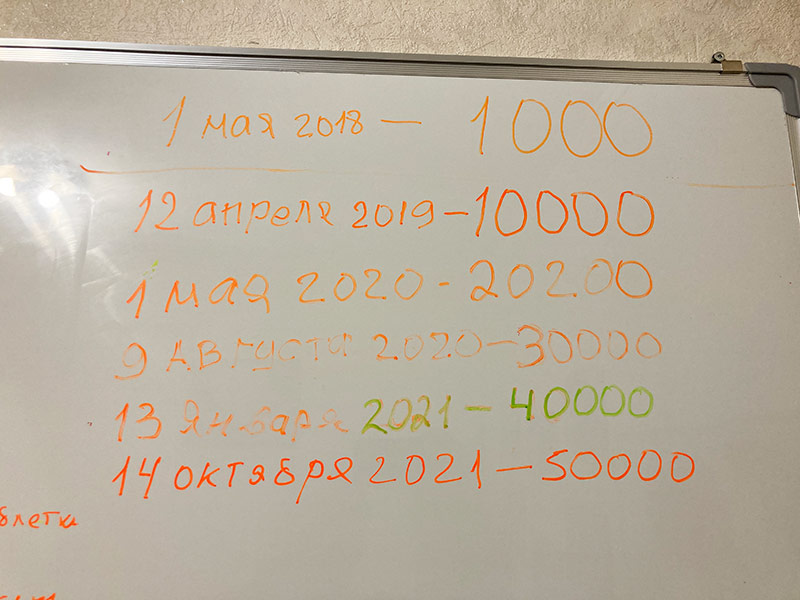 1 мая 2018 — 1000
12 апреля 2019 - 10000
1 мая 2020 - 20200
9 АВГУСТА 2020 - 30000
13 января 2021 - 40000
14 октября 2021 - 50000